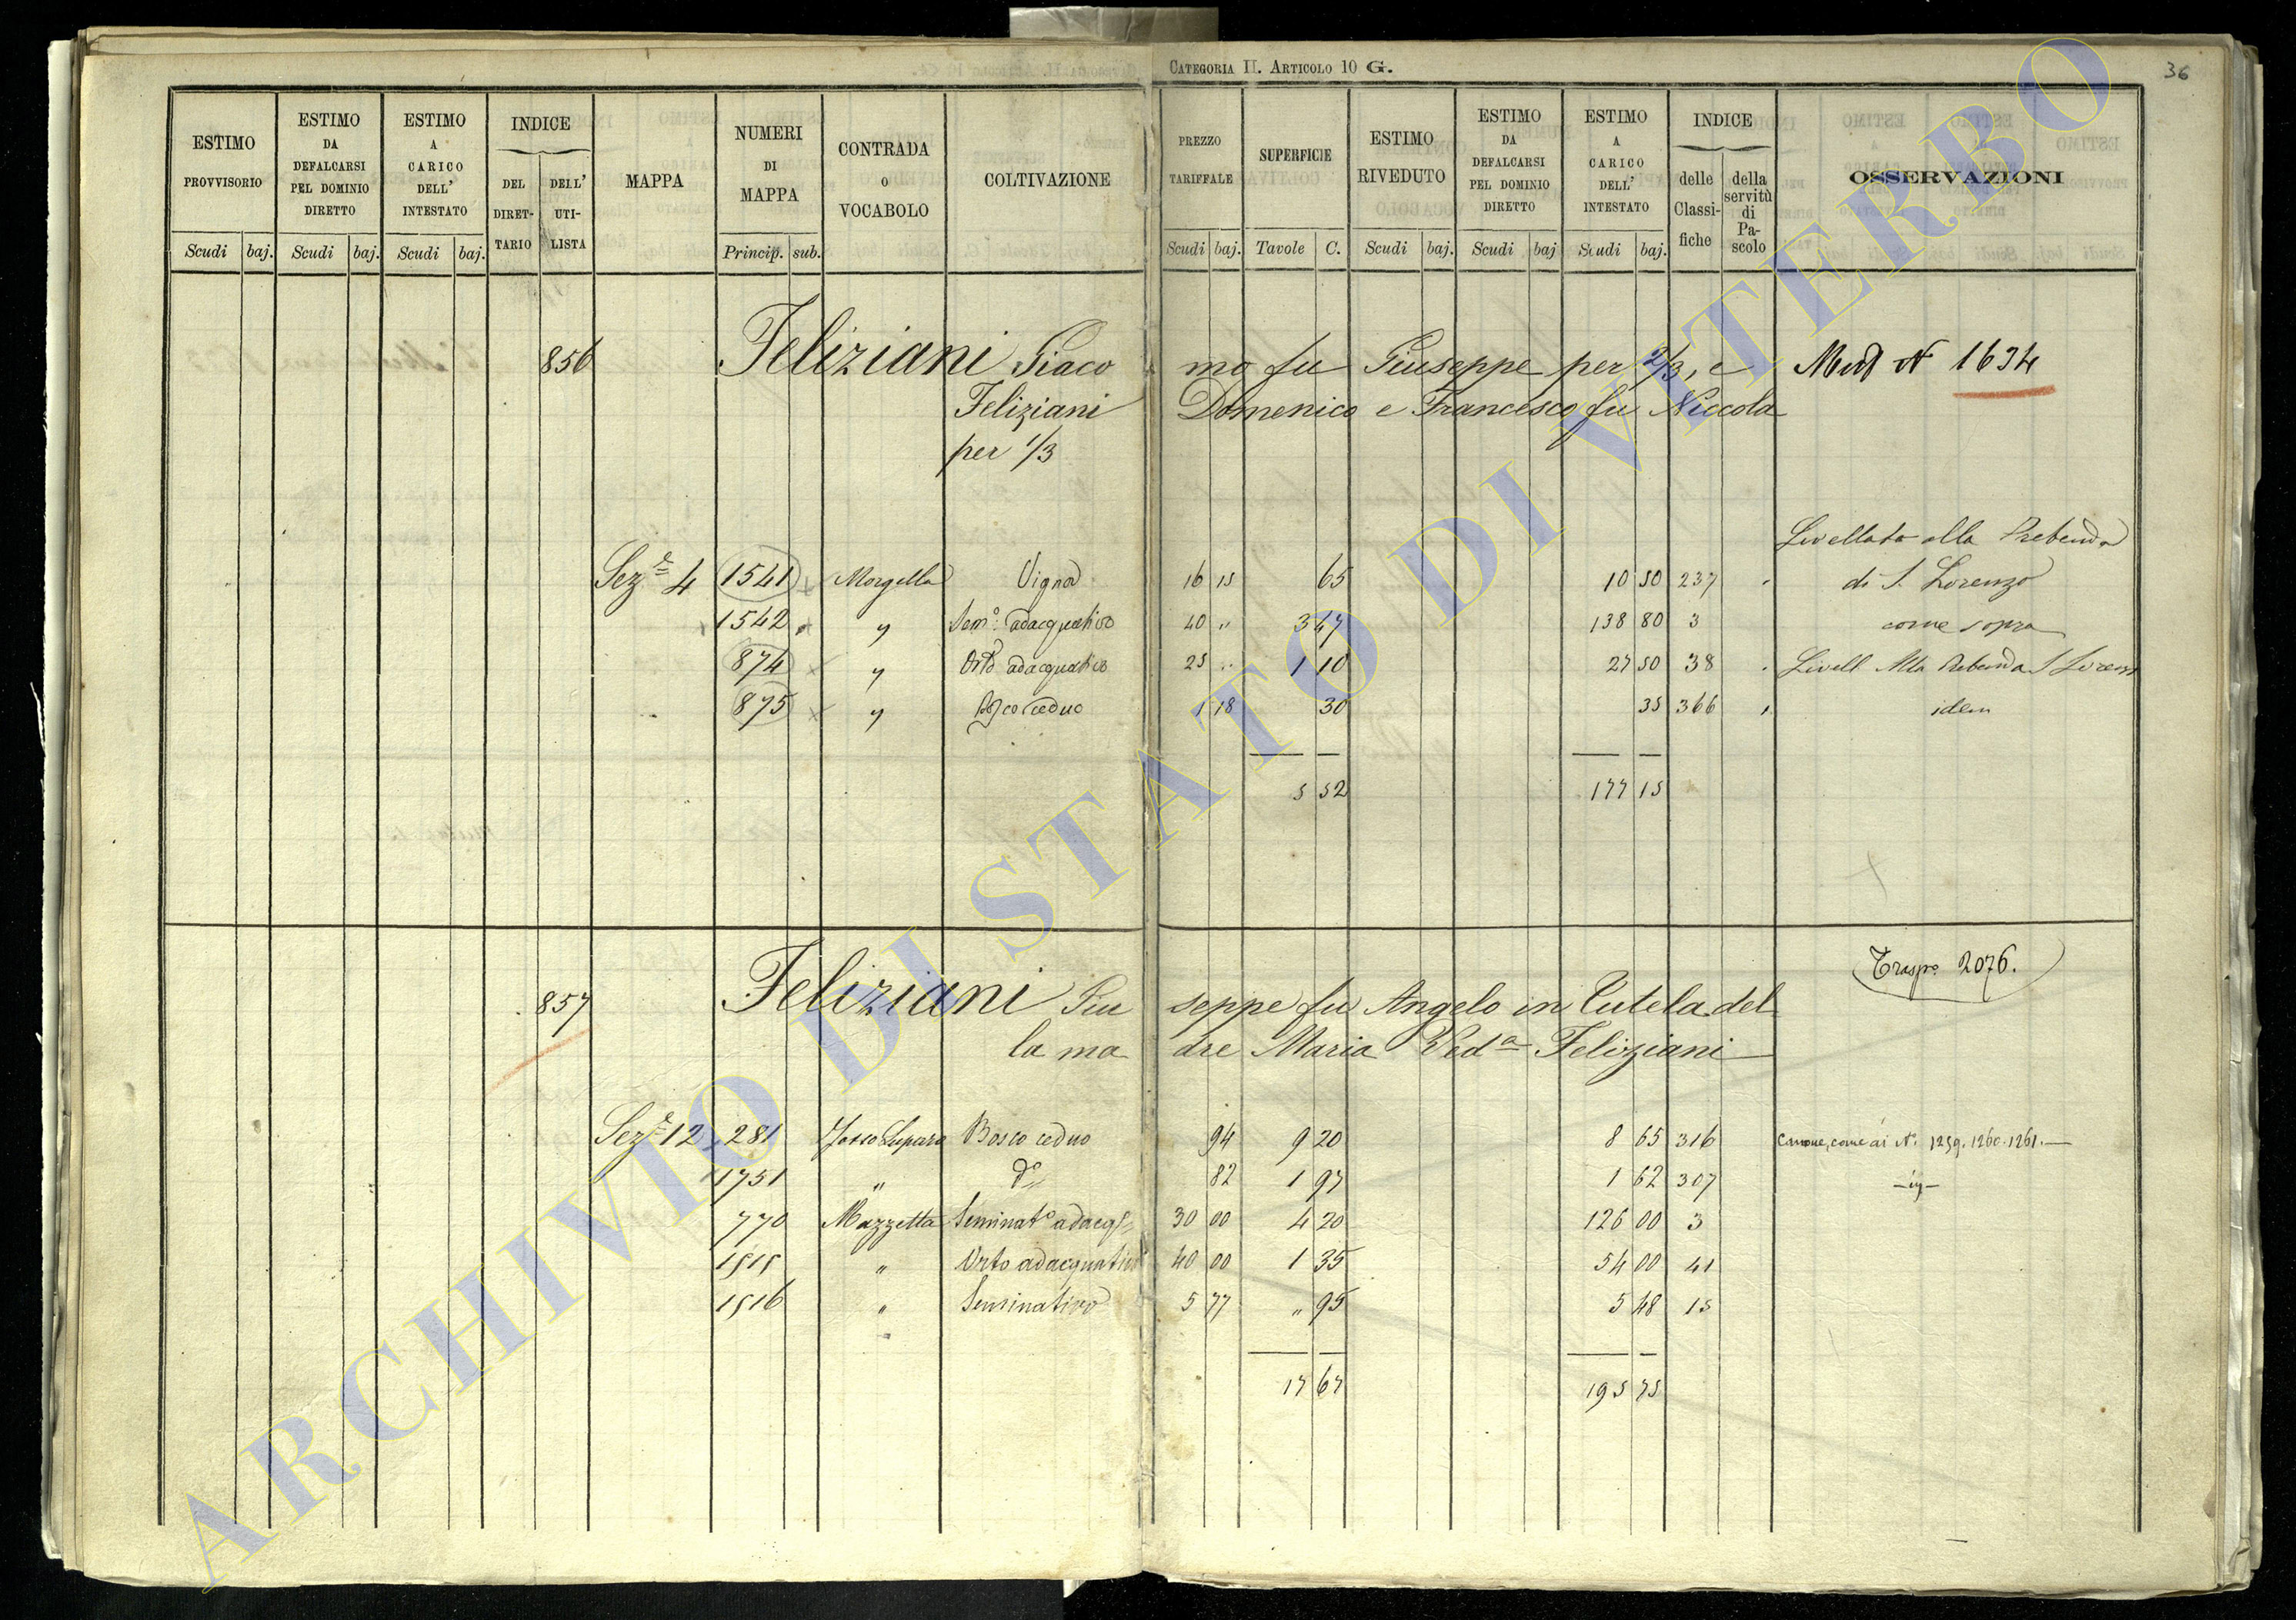 CATEGORIA II. ARTICOLO 10 G.
36
ESTIMO PROVVISORIO
Scudi baj.
ESTIMO DA DEFALCARSI PEL DOMINIO DIRETTO
Scudi baj.
ESTIMO A CARICO DELL' INTESTATO
Scudi baj.
INDICE
DEL DIRET-TARIO
DELL' UTI-LISTA
MAPPA
NUMERI DI MAPPA
Princip. sub.
CONTRADA O VOCABOLO
COLTIVAZIONE
PREZZO TARIFFALE
Scudi baj.
SUPERFICIE
Tavole C.
ESTIMO RIVEDUTO
Scudi baj.
ESTIMO DA DEFALCARSI PEL DOMINIO DIRETTO
Scudi baj
ESTIMO A CARICO DELL' INTESTATO
Scudi baj.
INDICE
delle Classi-fiche
della servitù di Pa-scolo
OSSERVAZIONI
856 Feliziani Giaco mo fu Giuseppe per 2/3, e N 1634
Feliziani Domenico e Francesco fu Niccola
per 1/3
Livellato alla Prebenda
Sez.e 4 1541 Morgella Vigna 16 15 65 10 50 237 di S. Lorenzo
1542 " Sem.o adacquativo 40 " 3 47 138 80 3 come sopra
874 " Orto adacquativo 25 " 1 10 27 50 38 Livell Alla Prebenda S Lorenz
875 " Bosco ceduo 1 18 30 35 366 idem
5 52 177 15
Trasp.o 2076.
857 Feliziani Giu seppe fu Angelo in Tutela del
la ma dre Maria Ved.a Feliziani
Sez.e 12 281 Fosso Lupara Bosco ceduo 94 9 20 8 65 316 Canone, come ai N. 1259. 1260. 1261.—
1751 " d.o 82 1 97 1 62 307
770 Mazzetta Seminat.o adacq. 30 00 4 20 126 00 3
1515 " Orto adacquativo 40 00 1 35 54 00 41
1516 " Seminativo 5 77 " 95 5 48 15
17 67 195 75
ARCHIVIO DI STATO DI VITERBO